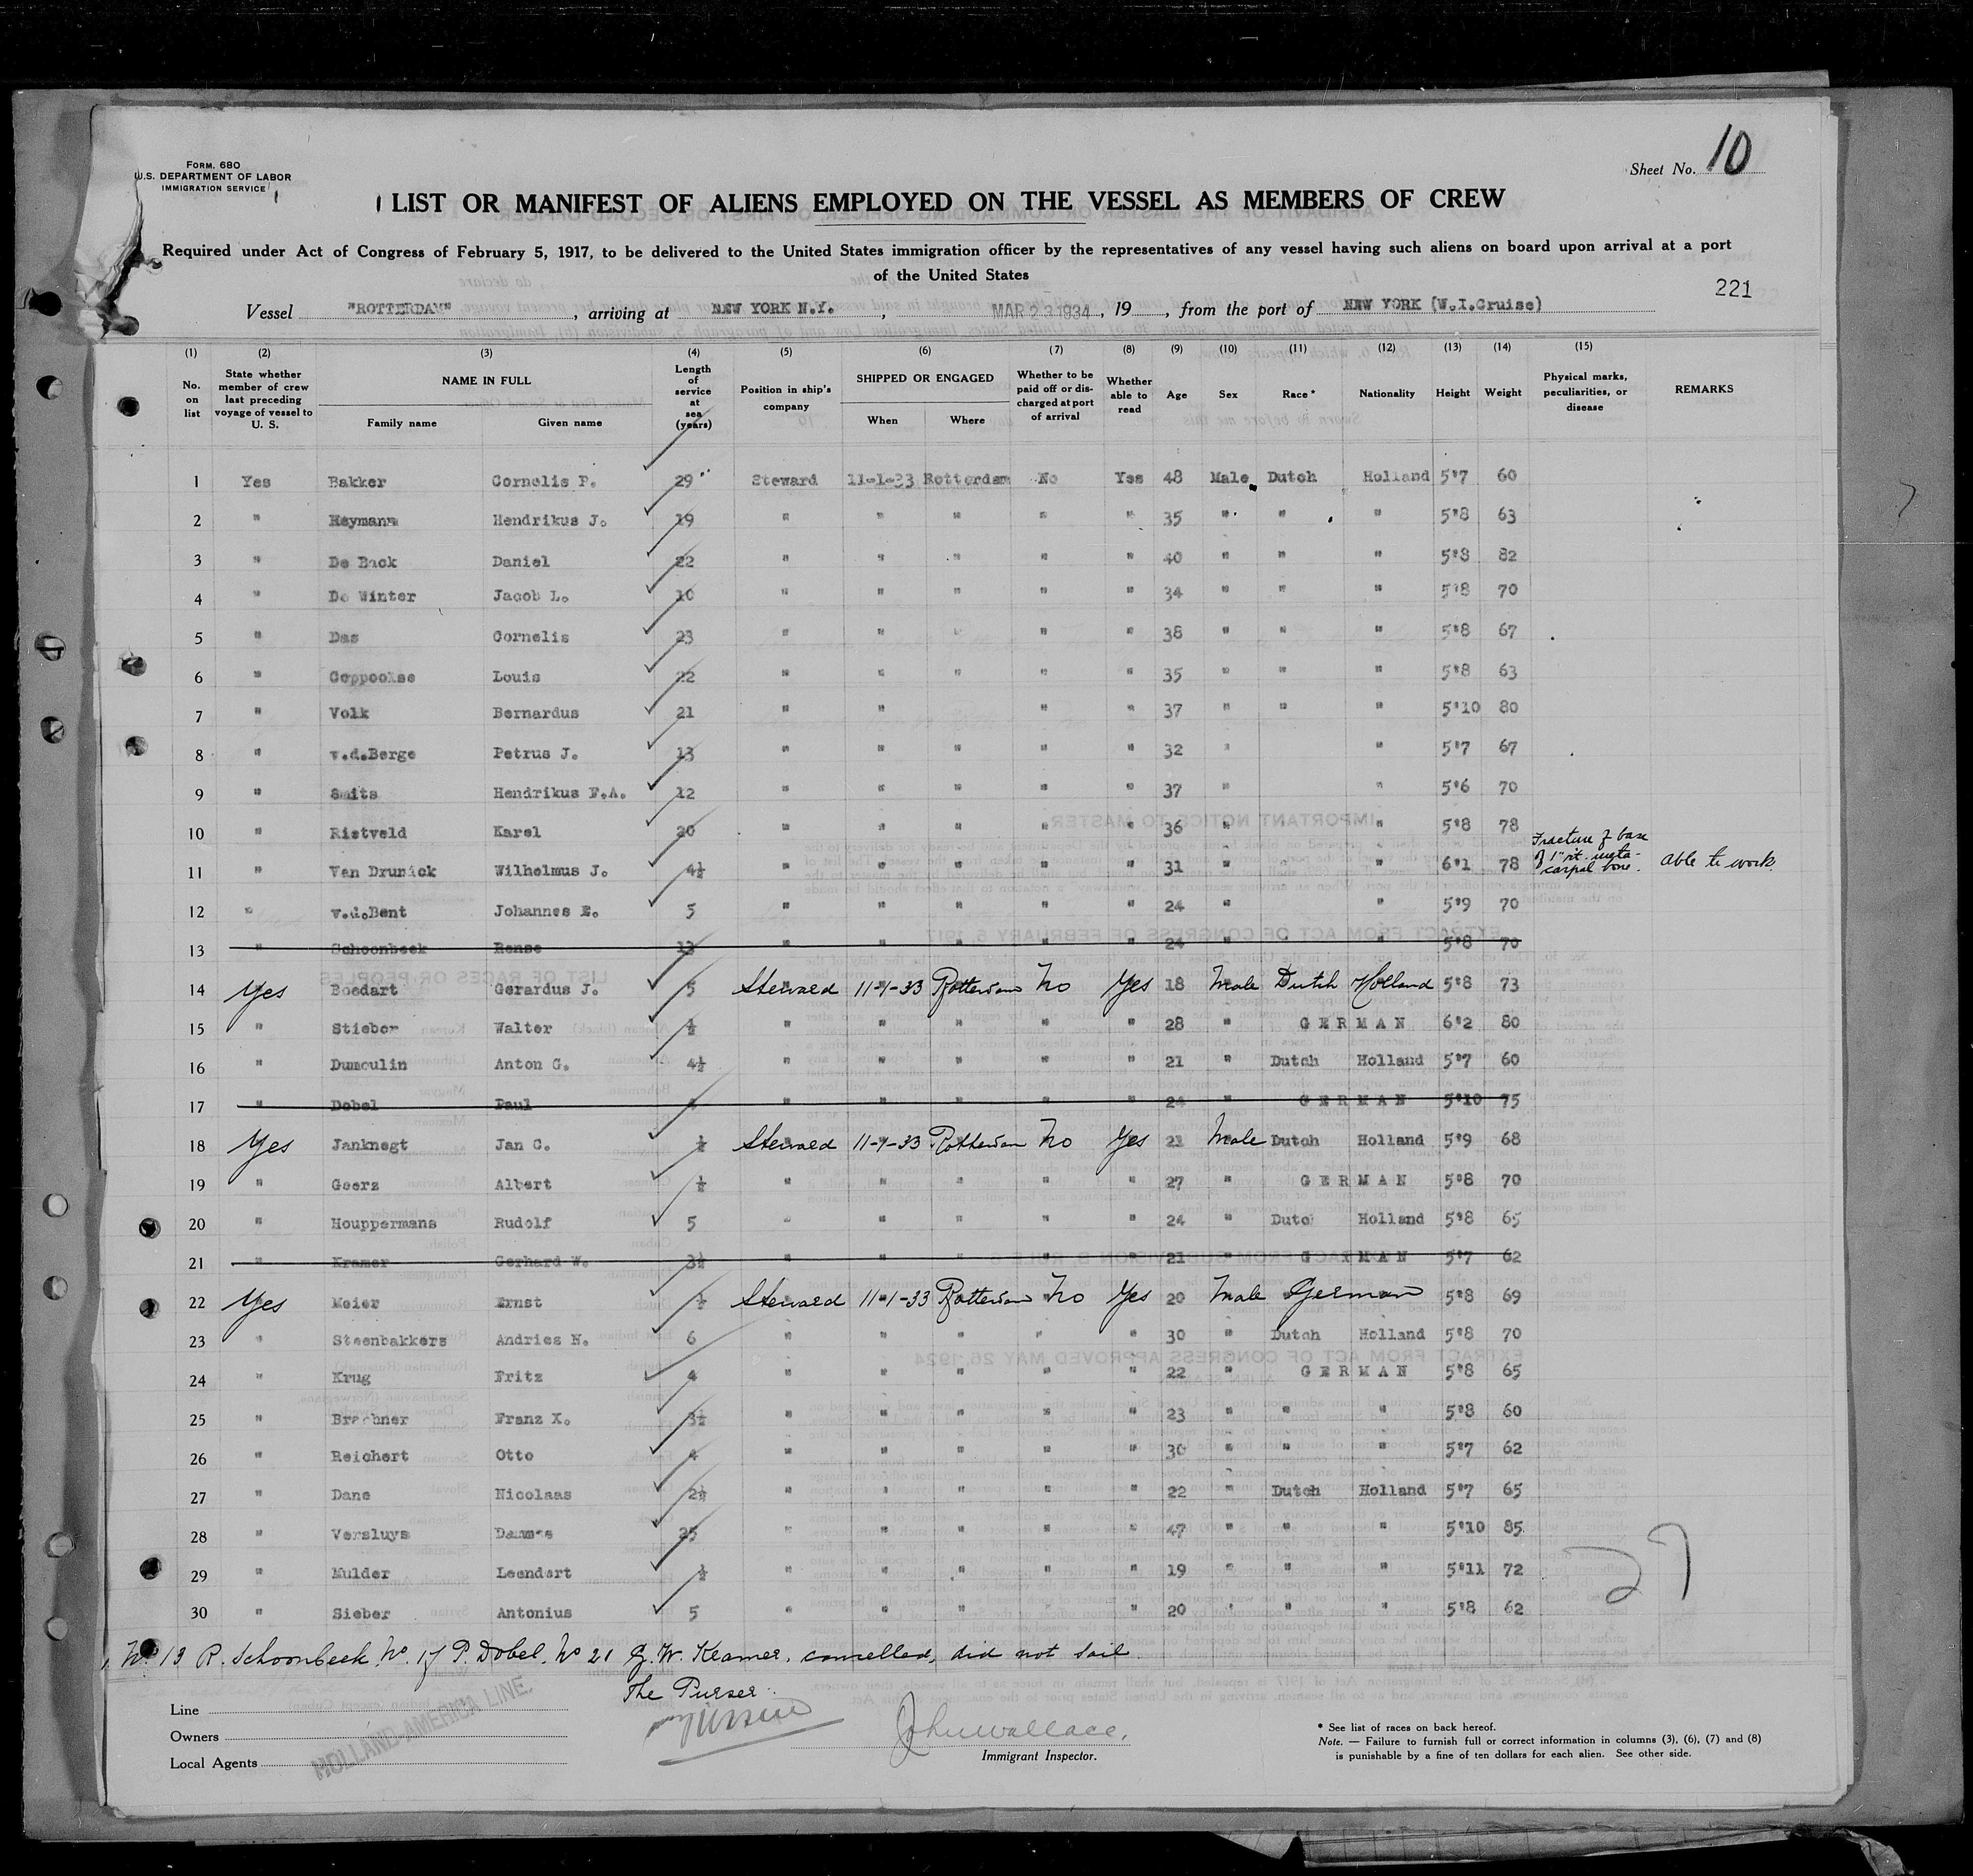 Form. 680
U.S. DEPARTMENT OF LABOR
IMMIGRATION SERVICE
Sheet No. 10
LIST OR MANIFEST OF ALIENS EMPLOYED ON THE VESSEL AS MEMBERS OF CREW
Required under Act of Congress of February 5, 1917, to be delivered to the United States immigration officer by the representatives of any vessel having such aliens on board upon arrival at a port
of the United States
221
Vessel "ROTTERDAM", arriving at NEW YORK N.Y., MAR 23 1934, 19, from the port of NEW YORK (W.I.Cruise)
(1) (2) (3) (4) (5) (6) (7) (8) (9) (10) (11) (12) (13) (14) (15)
No. on list State whether member of crew last preceding voyage of vessel to U. S. NAME IN FULL Family name Given name Length of service at sea (years) Position in ship's company SHIPPED OR ENGAGED When Where Whether to be paid off or discharged at port of arrival Whether able to read Age Sex Race * Nationality Height Weight Physical marks, peculiarities, or disease REMARKS
1 Yes Bakker Cornelis P. 29 Steward 11-1-33 Rotterdam No Yes 48 Male Dutch Holland 5'7 60
2 " Heymann Hendrikus J. 19 " " " " " 35 " " " 5'8 63
3 " De Back Daniel 22 " " " " " 40 " " " 5'8 82
4 " De Winter Jacob L. 10 " " " " " 34 " " " 5'8 70
5 " Das Cornelis 23 " " " " " 38 " " " 5'8 67
6 " Coppoolse Louis 22 " " " " " 35 " " " 5'8 63
7 " Volk Bernardus 21 " " " " 37 " " " 5'10 80
8 " v.d.Berge Petrus J. 13 " " " " " 32 " " 5'7 67
9 " Smits Hendrikus F.A. 12 " " " " " 37 " " 5'6 70
10 " Rietveld Karel 20 " " " " " 36 " " " 5'8 78
11 " Van Drunick Wilhelmus J. 4½ " " " " " 31 " " " 6'1 78 Fracture of base of 1" rt. meta-carpal bone. able to work.
12 " v.d.Bent Johannes E. 5 " " " " " 24 " " 5'9 70
13 " Schoonbeek Rense 13 " " " " " 24 " " " 5'8 70
14 Yes Boedart Gerardus J. 5 Steward 11-1-33 Rotterdam No Yes 18 Male Dutch Holland 5'8 73
15 " Stieber Walter ½ " " " " " 28 " GERMAN 6'2 80
16 " Dumoulin Anton G. 4½ " " " " " 21 " Dutch Holland 5'7 60
17 " Dobel Paul " " " " " 24 " GERMAN 5'10 75
18 Yes Janknegt Jan C. ½ Steward 11-1-33 Rotterdam No Yes 21 Male Dutch Holland 5'9 68
19 " Geerz Albert ½ " " " " " 27 " GERMAN 5'8 70
20 " Houppermans Rudolf 5 " " " " " 24 " Dutch Holland 5'8 65
21 " Kramer Gerhard W. 3½ " " " " " 21 " GERMAN 5'7 62
22 Yes Meier Ernst ½ Steward 11-1-33 Rotterdam No Yes 20 Male German 5'8 69
23 " Steenbakkers Andries N. 6 " " " " " 30 " Dutch Holland 5'8 70
24 " Krug Fritz 4 " " " " " 22 " GERMAN 5'8 65
25 " Brechner Franz X. 3½ " " " " " 23 " " " 5'8 60
26 " Reichert Otto 4 " " " " " 30 " " " 5'7 62
27 " Dane Nicolaas 2½ " " " " " 22 " Dutch Holland 5'7 65
28 " Versluys Dammes 25 " " " " " 47 " " " 5'10 85
29 " Mulder Leendert ½ " " " " " 19 " " " 5'11 72
30 " Sieber Antonius 5 " " " " " 20 " " " 5'8 62
27
No 13 R. Schoonbeek, No. 17 P. Dobel, No 21 G. W. Kramer, cancelled, did not sail.
The Purser:
Line
Owners
Local Agents
HOLLAND-AMERICA LINE.
John Wallace,
Immigrant Inspector.
* See list of races on back hereof.
Note. — Failure to furnish full or correct information in columns (3), (6), (7) and (8)
is punishable by a fine of ten dollars for each alien. See other side.